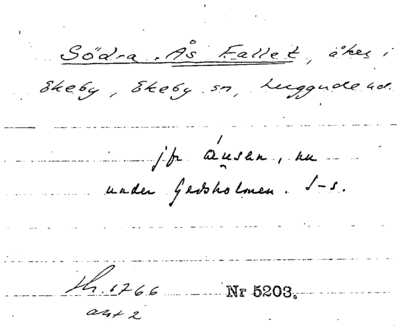 Södra Ås Fallet, åker i
Ekeby, Ekeby sn, Luggude hd.
jfr åusen, nu
under Gedsholmen. S-s.
Lh. 1766
akt 2
Nr 5203.